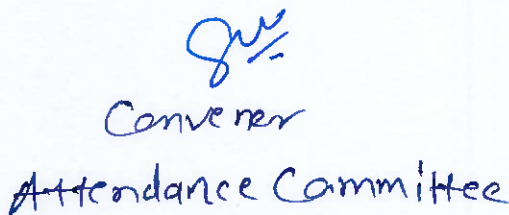 Convener
Attendance Committee